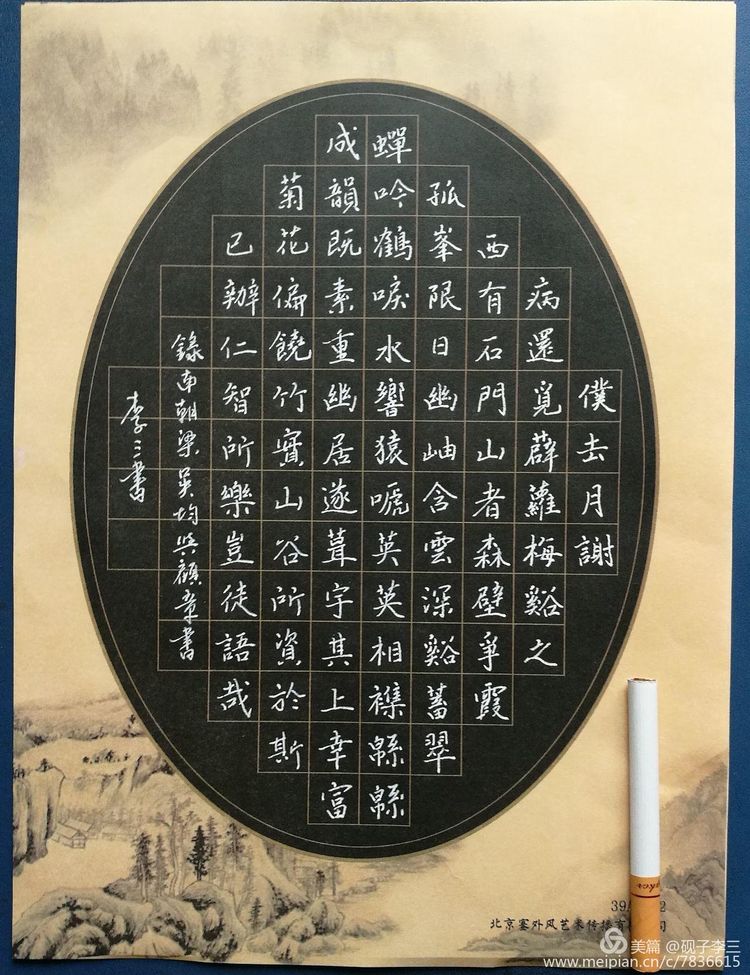 僕去月謝
病還覓薜蘿梅谿之
西有石門山者森壁爭霞
孤峯限日幽岫含雲深谿蓄翠
蟬吟鶴唳水響猿嗁英英相襍緜緜
成韻既素重幽居遂葺宇其上幸富
菊花偏饒竹實山谷所資於斯
已辦仁智所樂豈徒語哉
錄南朝梁吳均與顧章書
李三書
北京塞外风艺术传播有 司
美篇 @砚子李三
www.meipian.cn/c/7836615